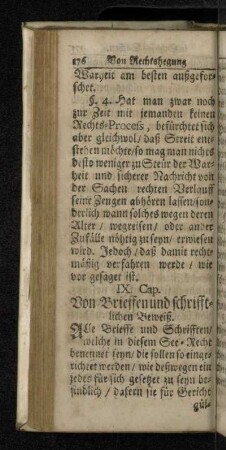 176 Von Rechtshegung
Warzeit am besten außgefor-
schet.
§. 4. Hat man zwar noch
zur Zeit mit jemanden keinen
Rechts-Process, befürchtet sich
aber gleichwol/ daß Streit ent-
stehen möchte/ so mag man nichts
desto weniger zu Steür der War-
heit und sicherer Nachricht von
der Sachen rechten Verlauff
seine Zeugen abhören lassen/ son-
derlich wann solches wegen deren
Alter/ wegreisen/ oder ander
Zufälle nöhtig zu seyn/ erwiesen
wird. Jedoch/ daß damit recht-
mäßig verfahren werde/ wie
vor gesaget ist.
IX. Cap.
Von Brieffen und schrifft-
lichen Beweiß.
Alle Brieffe und Schrifften/
welche in diesem See-Recht
benennet seyn/ die sollen so einge-
richtet werden/ wie deßwegen ein
jedes für sich gesetzet zu seyn be-
findlich/ dafern sie für Gericht
gül-